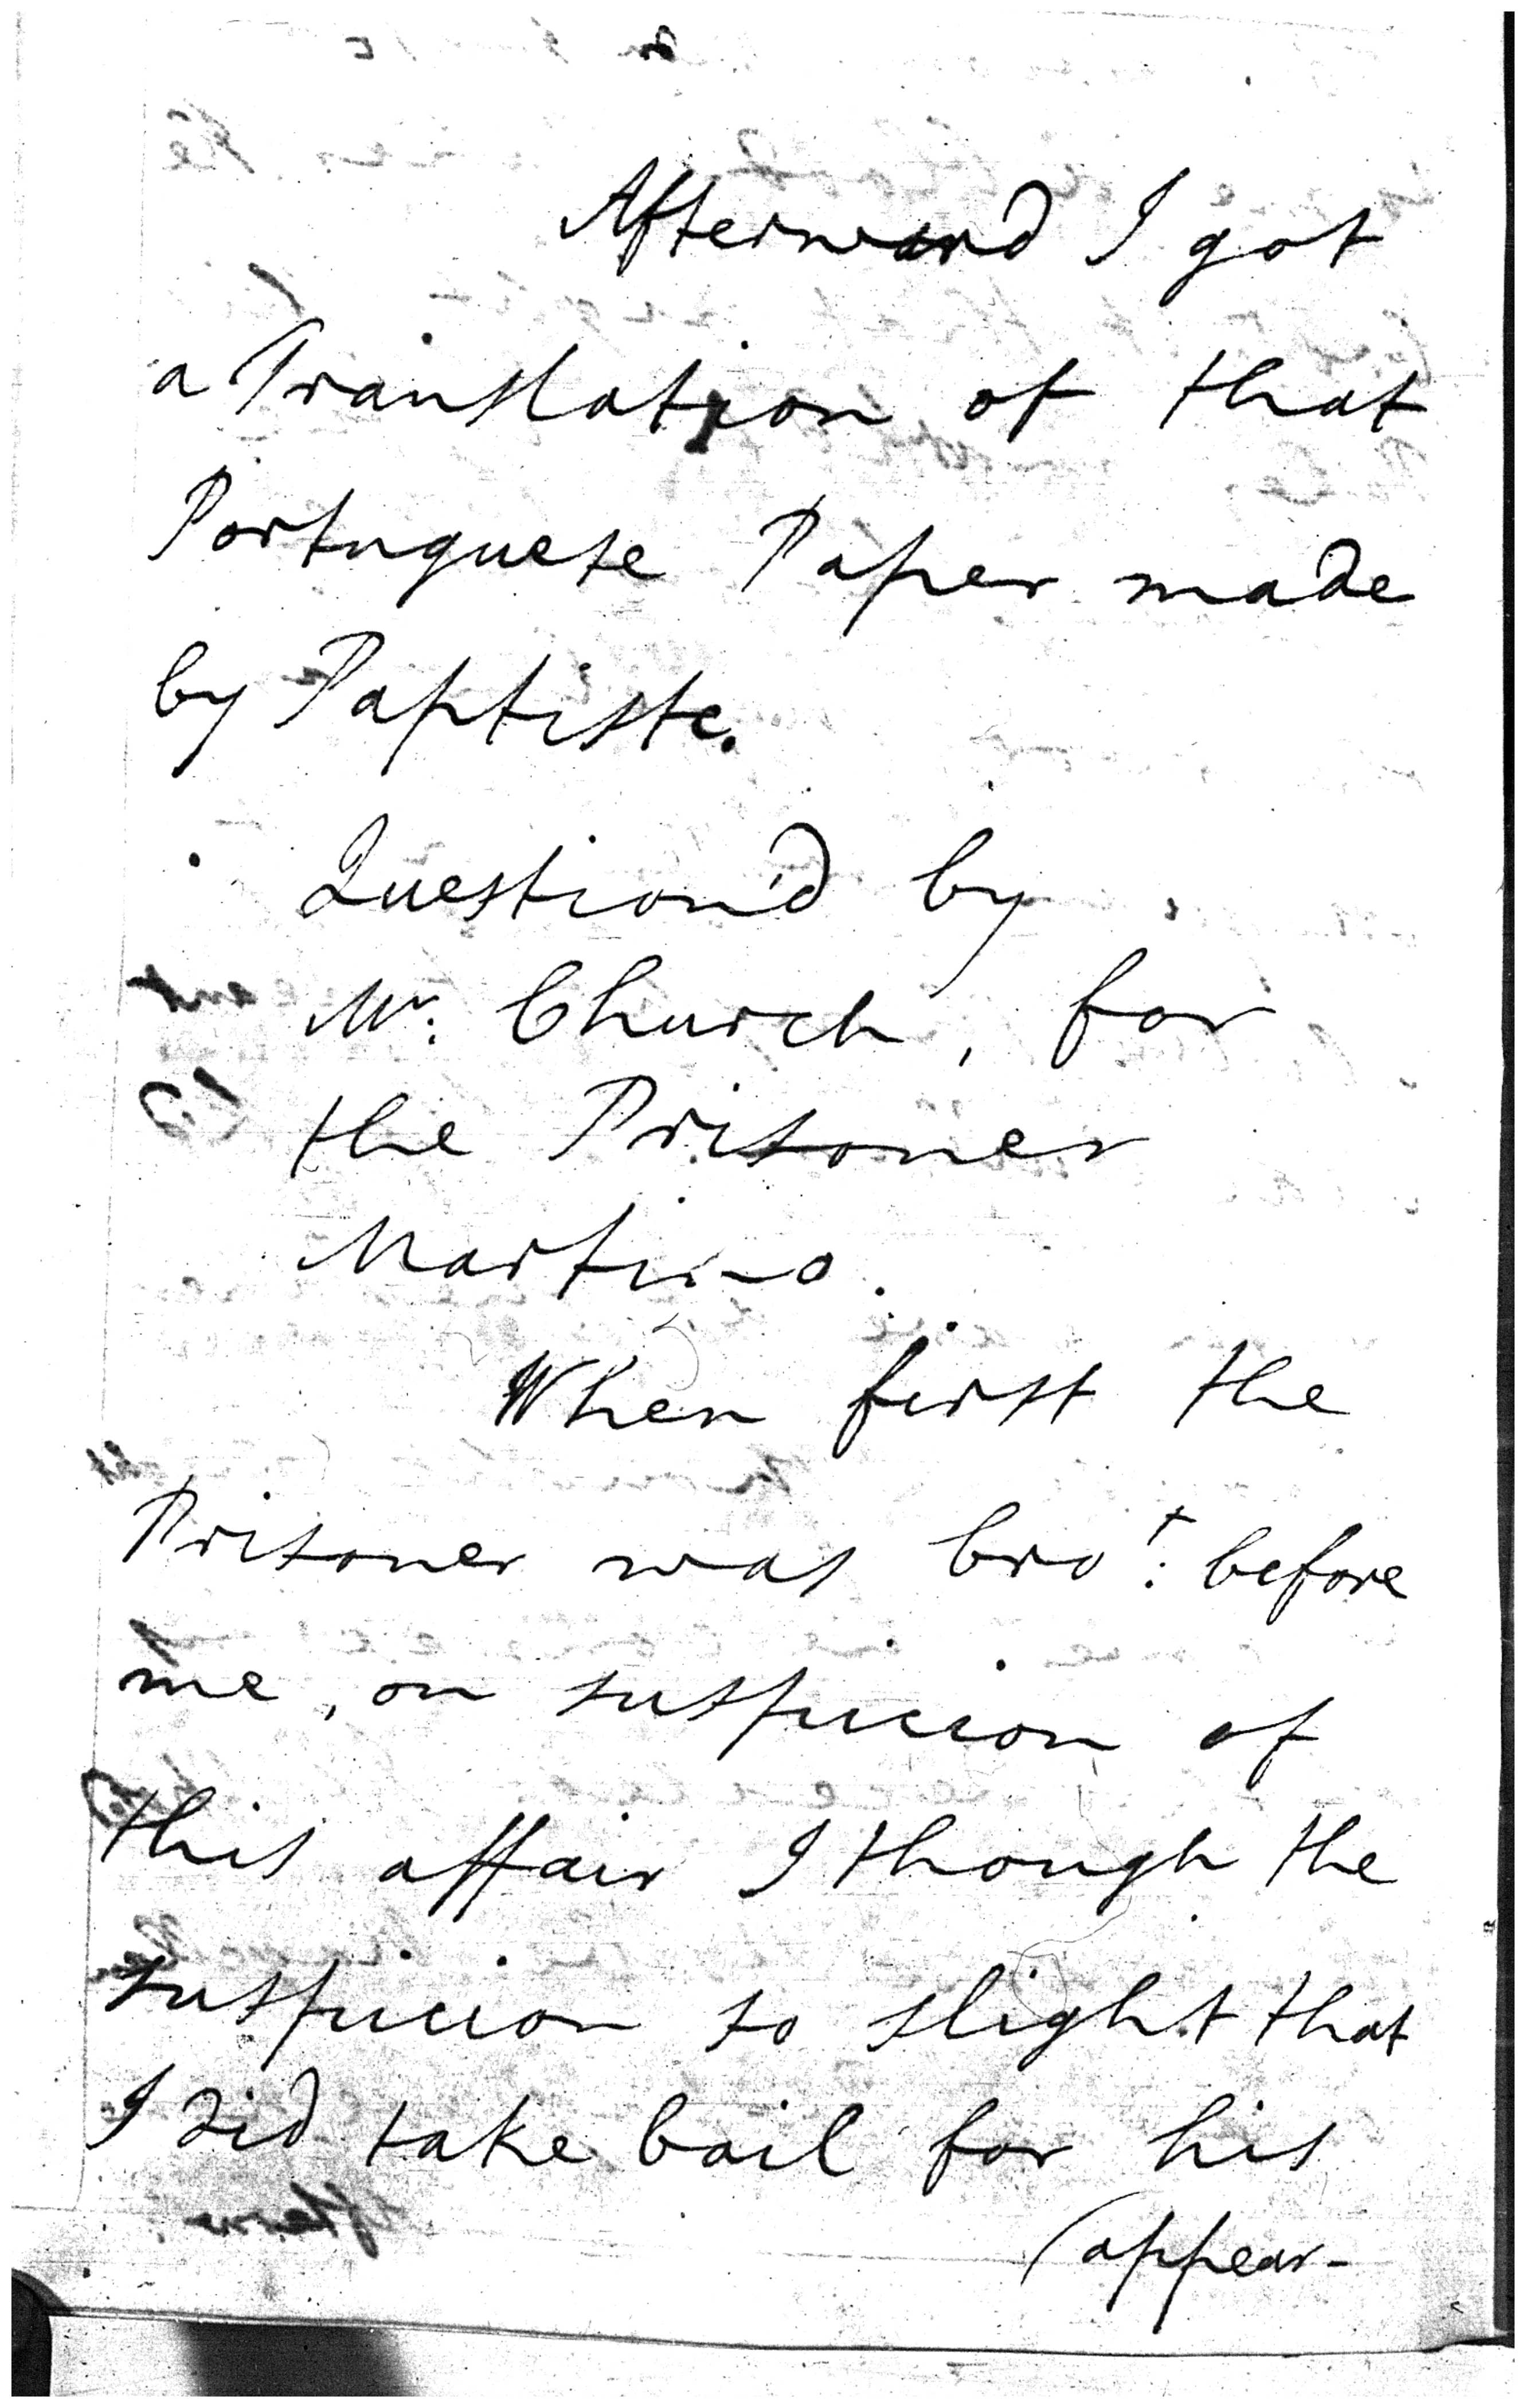 Afterward I got
a Translation of that
Portuguese Paper made
by Paptiste.
Question'd by
Mr. Church, for
the Prisoner
Martino.
When first the
Prisoner was brot: before
me, on suspicion of
this affair I though the
suspicion so slight that
I did take bail for his
(appear-